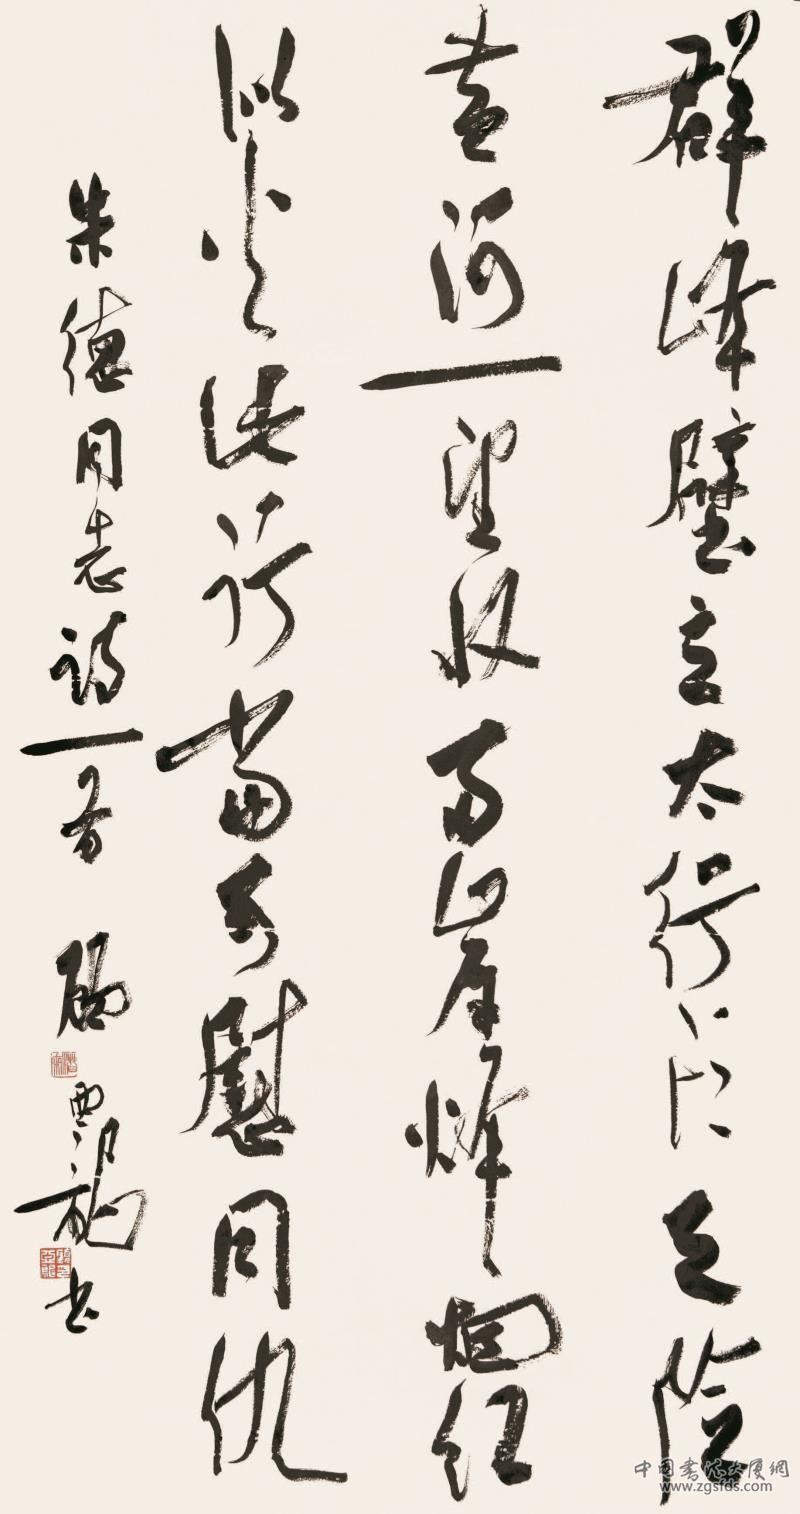 群峰壁立太行头天险
黄河一望收两岸烽烟红
似火此行当可慰同仇
朱德同志诗一首 顾亚龙书
中国书法大厦網
www.zgsfds.com